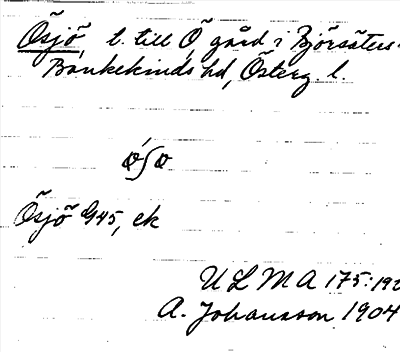 Ösjö, l. till Ö gård i Björsäters-
Bankekinds hd, Österg. l.
ǿʃø
Ösjö G45, ek
ULMA 175:192
A. Johansson 1904